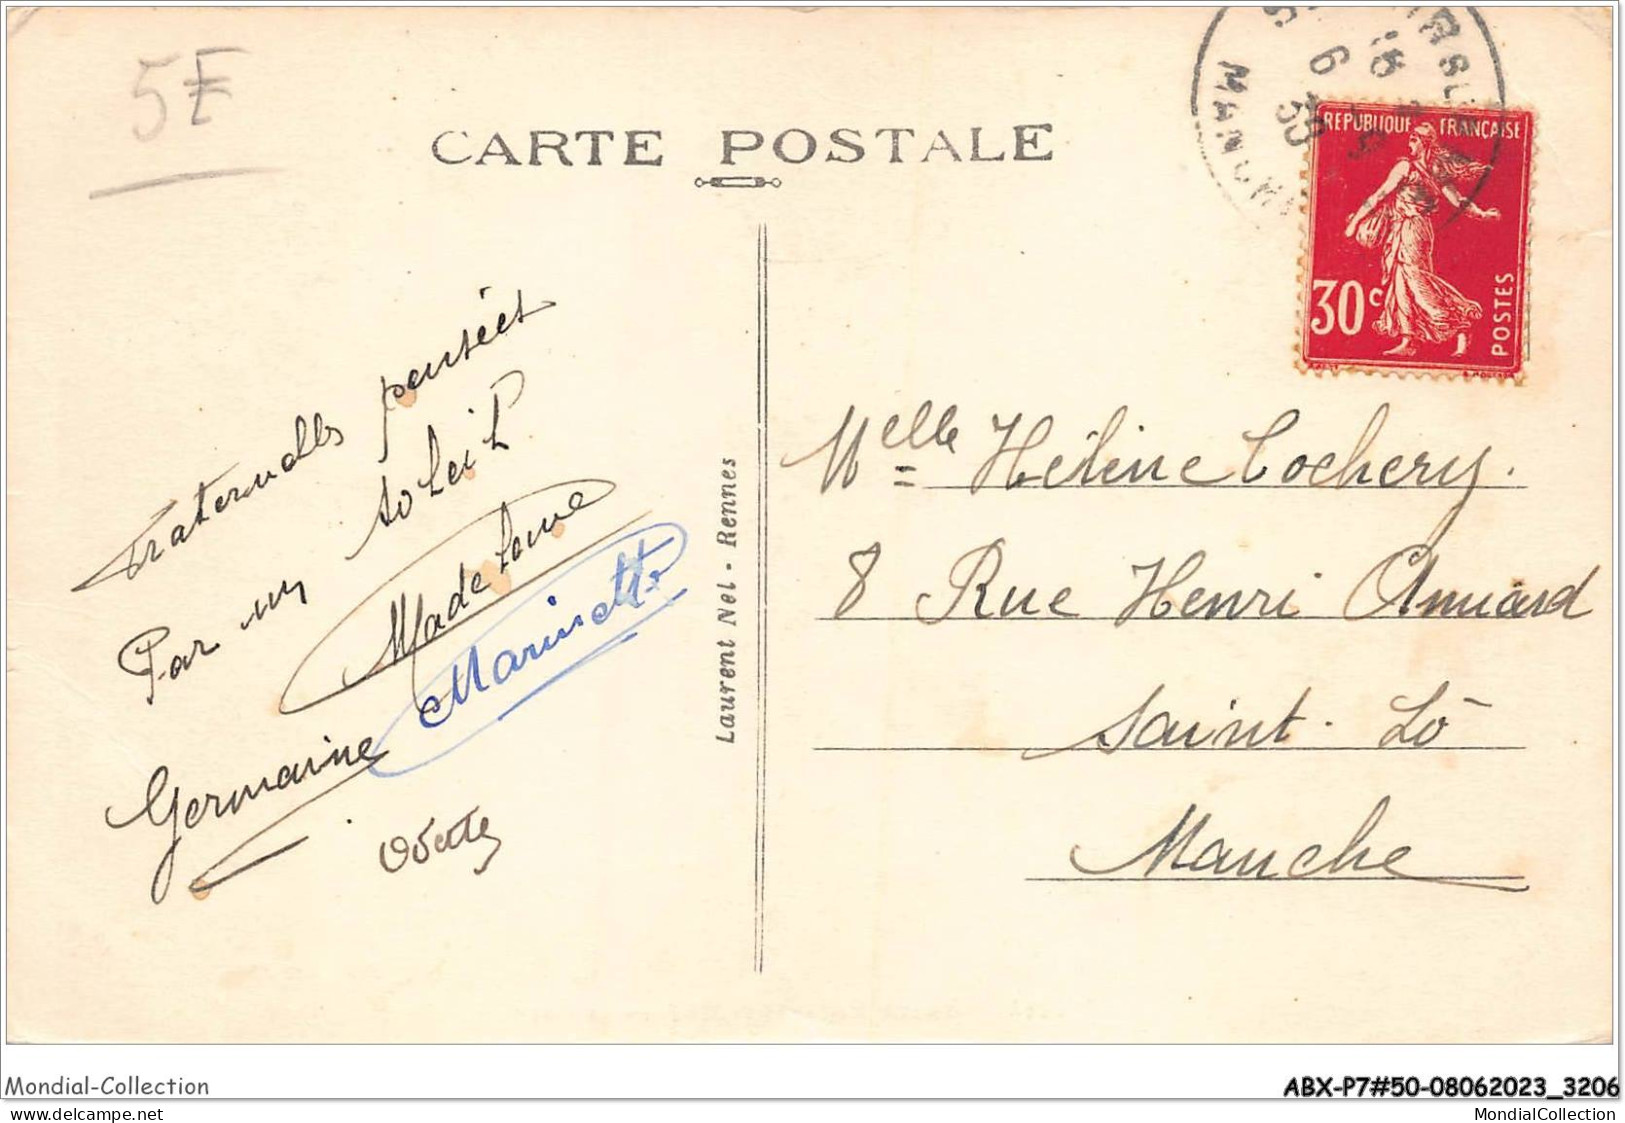 5F
CARTE POSTALE
MANCHE
6
REPUBLIQUE FRANCAISE
30c
POSTES
Fraternelles pensées
Par un soleil
Madeleine
Marinette
Germaine
Odette
Laurent Nel - Rennes
Melle Hélène Cochery.
8 Rue Henri Amiard
Saint-Lô
Manche
Mondial-Collection
ABX-P7#50-08062023_3206
delcampe.net
MondialCollection